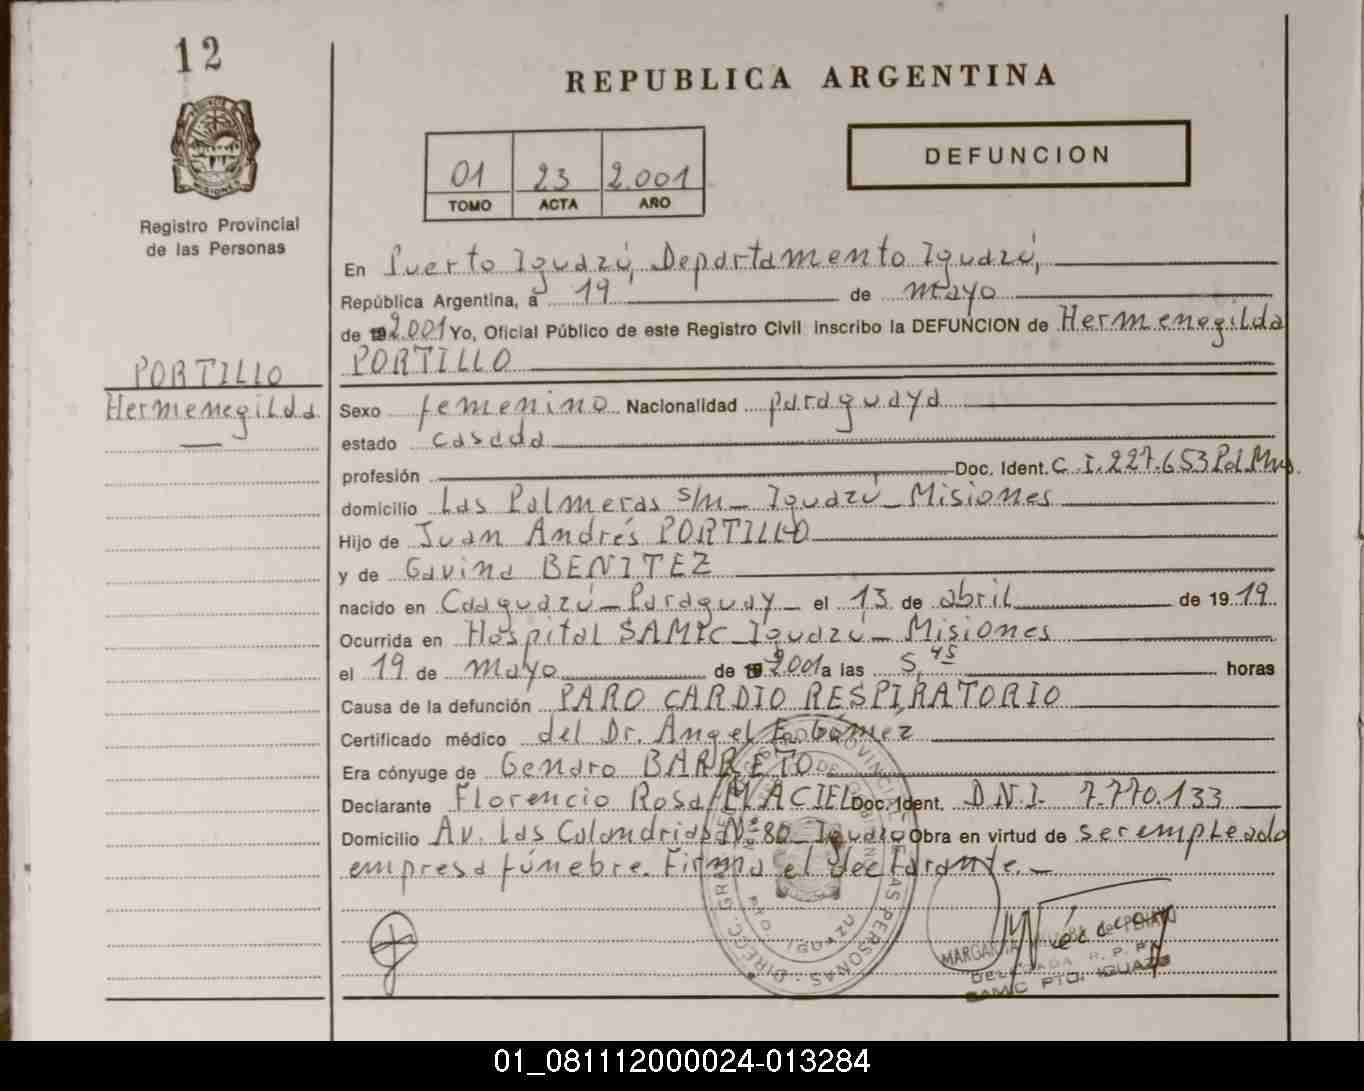 12
REPUBLICA ARGENTINA
01 23 2.001
TOMO ACTA AÑO
DEFUNCION
Registro Provincial
de las Personas
En Puerto Iguazú, Departamento Iguazú,
República Argentina, a 19 de mayo
de 2.001 Yo, Oficial Público de este Registro Civil inscribo la DEFUNCION de Hermenegilda
PORTILLO
PORTILLO
Hermenegilda
Sexo femenino Nacionalidad paraguaya
estado casada
profesión Doc. Ident. C.I.227.653 Pol.Mns.
domicilio Las Palmeras s/n - Iguazú - Misiones
Hijo de Juan Andrés PORTILLO
y de Gavina BENITEZ
nacido en Caaguazú - Paraguay - el 13 de abril de 1919
Ocurrida en Hospital SAMIC - Iguazú - Misiones
el 19 de mayo de 2001 a las 5,45 horas
Causa de la defunción PARO CARDIO RESPIRATORIO
Certificado médico del Dr. Angel E. Gómez
Era cónyuge de Genaro BARRETO
Declarante Florencio Rosa MACIEL Doc. Ident. D.N.I. 7.770.133
Domicilio Av. Las Calandrias Nº 80 - Iguazú Obra en virtud de ser empleado
empresa fúnebre. Firma el declarante. -
DIREC. GRAL. PROVINCIAL DE LAS PERSONAS
PTO. IGUAZU
MARGARITA de PENAYO
DELEGADA R. P. P.
SAMIC PTO. IGUAZU
01_081112000024-013284